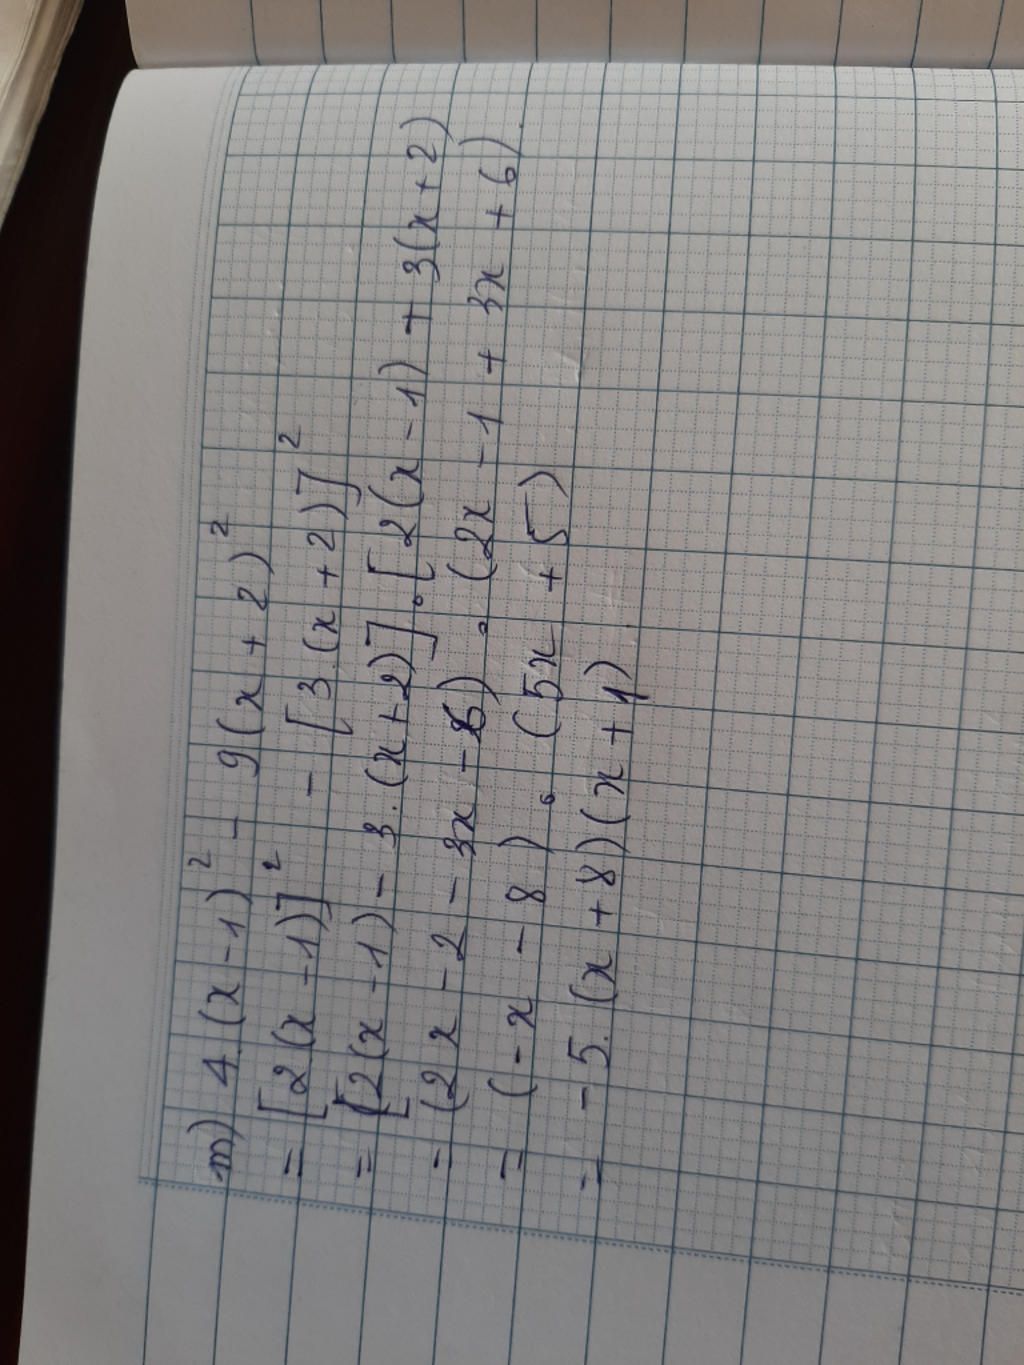 m) 4.(x-1)² - 9(x+2)²
= [2(x-1)]² - [3.(x+2)]²
= [2(x-1) - 3.(x+2)].[2(x-1) + 3(x+2)
= (2x - 2 - 3x - 6).(2x - 1 + 3x + 6).
= (-x - 8).(5x + 5)
= -5.(x+8)(x+1).